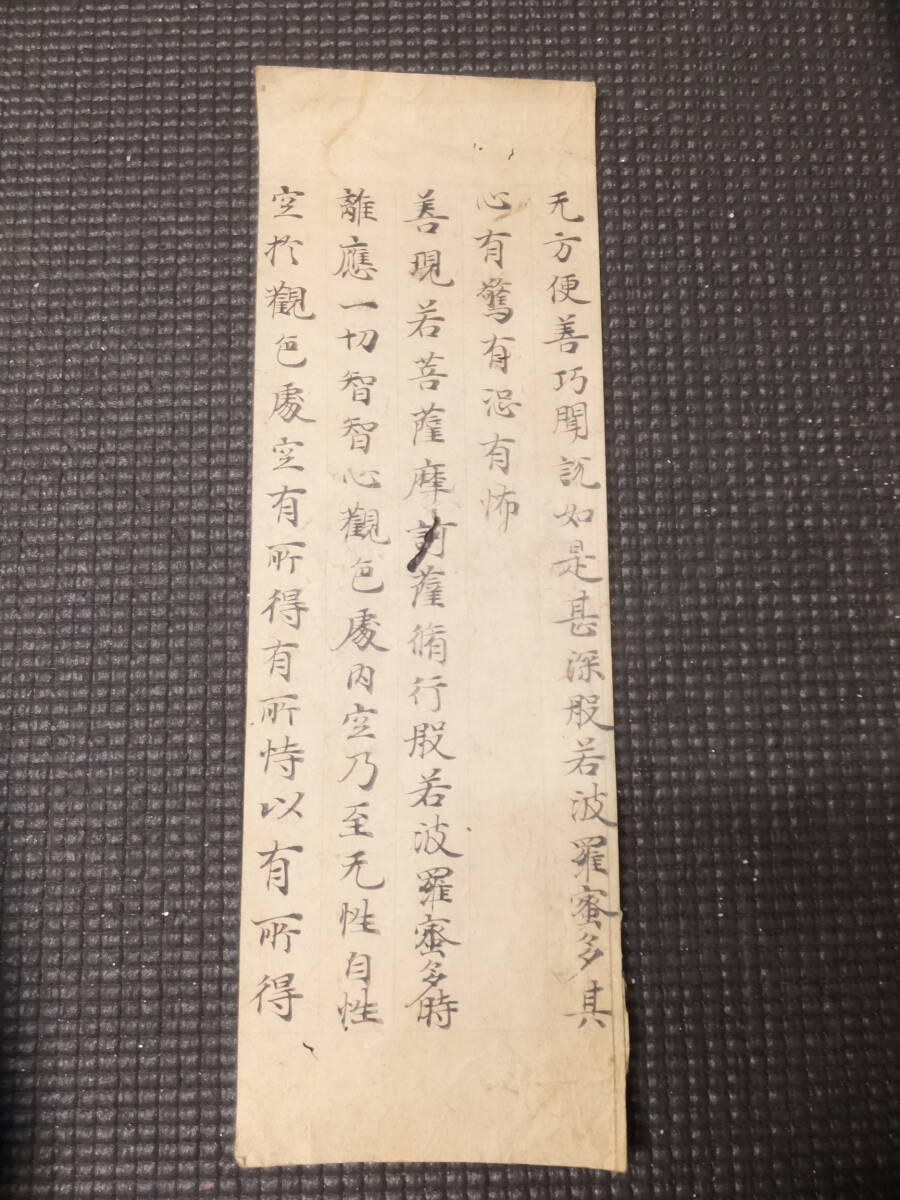 无方便善巧聞說如是甚深般若波羅蜜多其
心有驚有恐有怖
善現若菩薩摩訶薩脩行般若波羅蜜多時
離應一切智智心觀色處內空乃至无性自性
空於觀色處空有所得有所恃以有所得